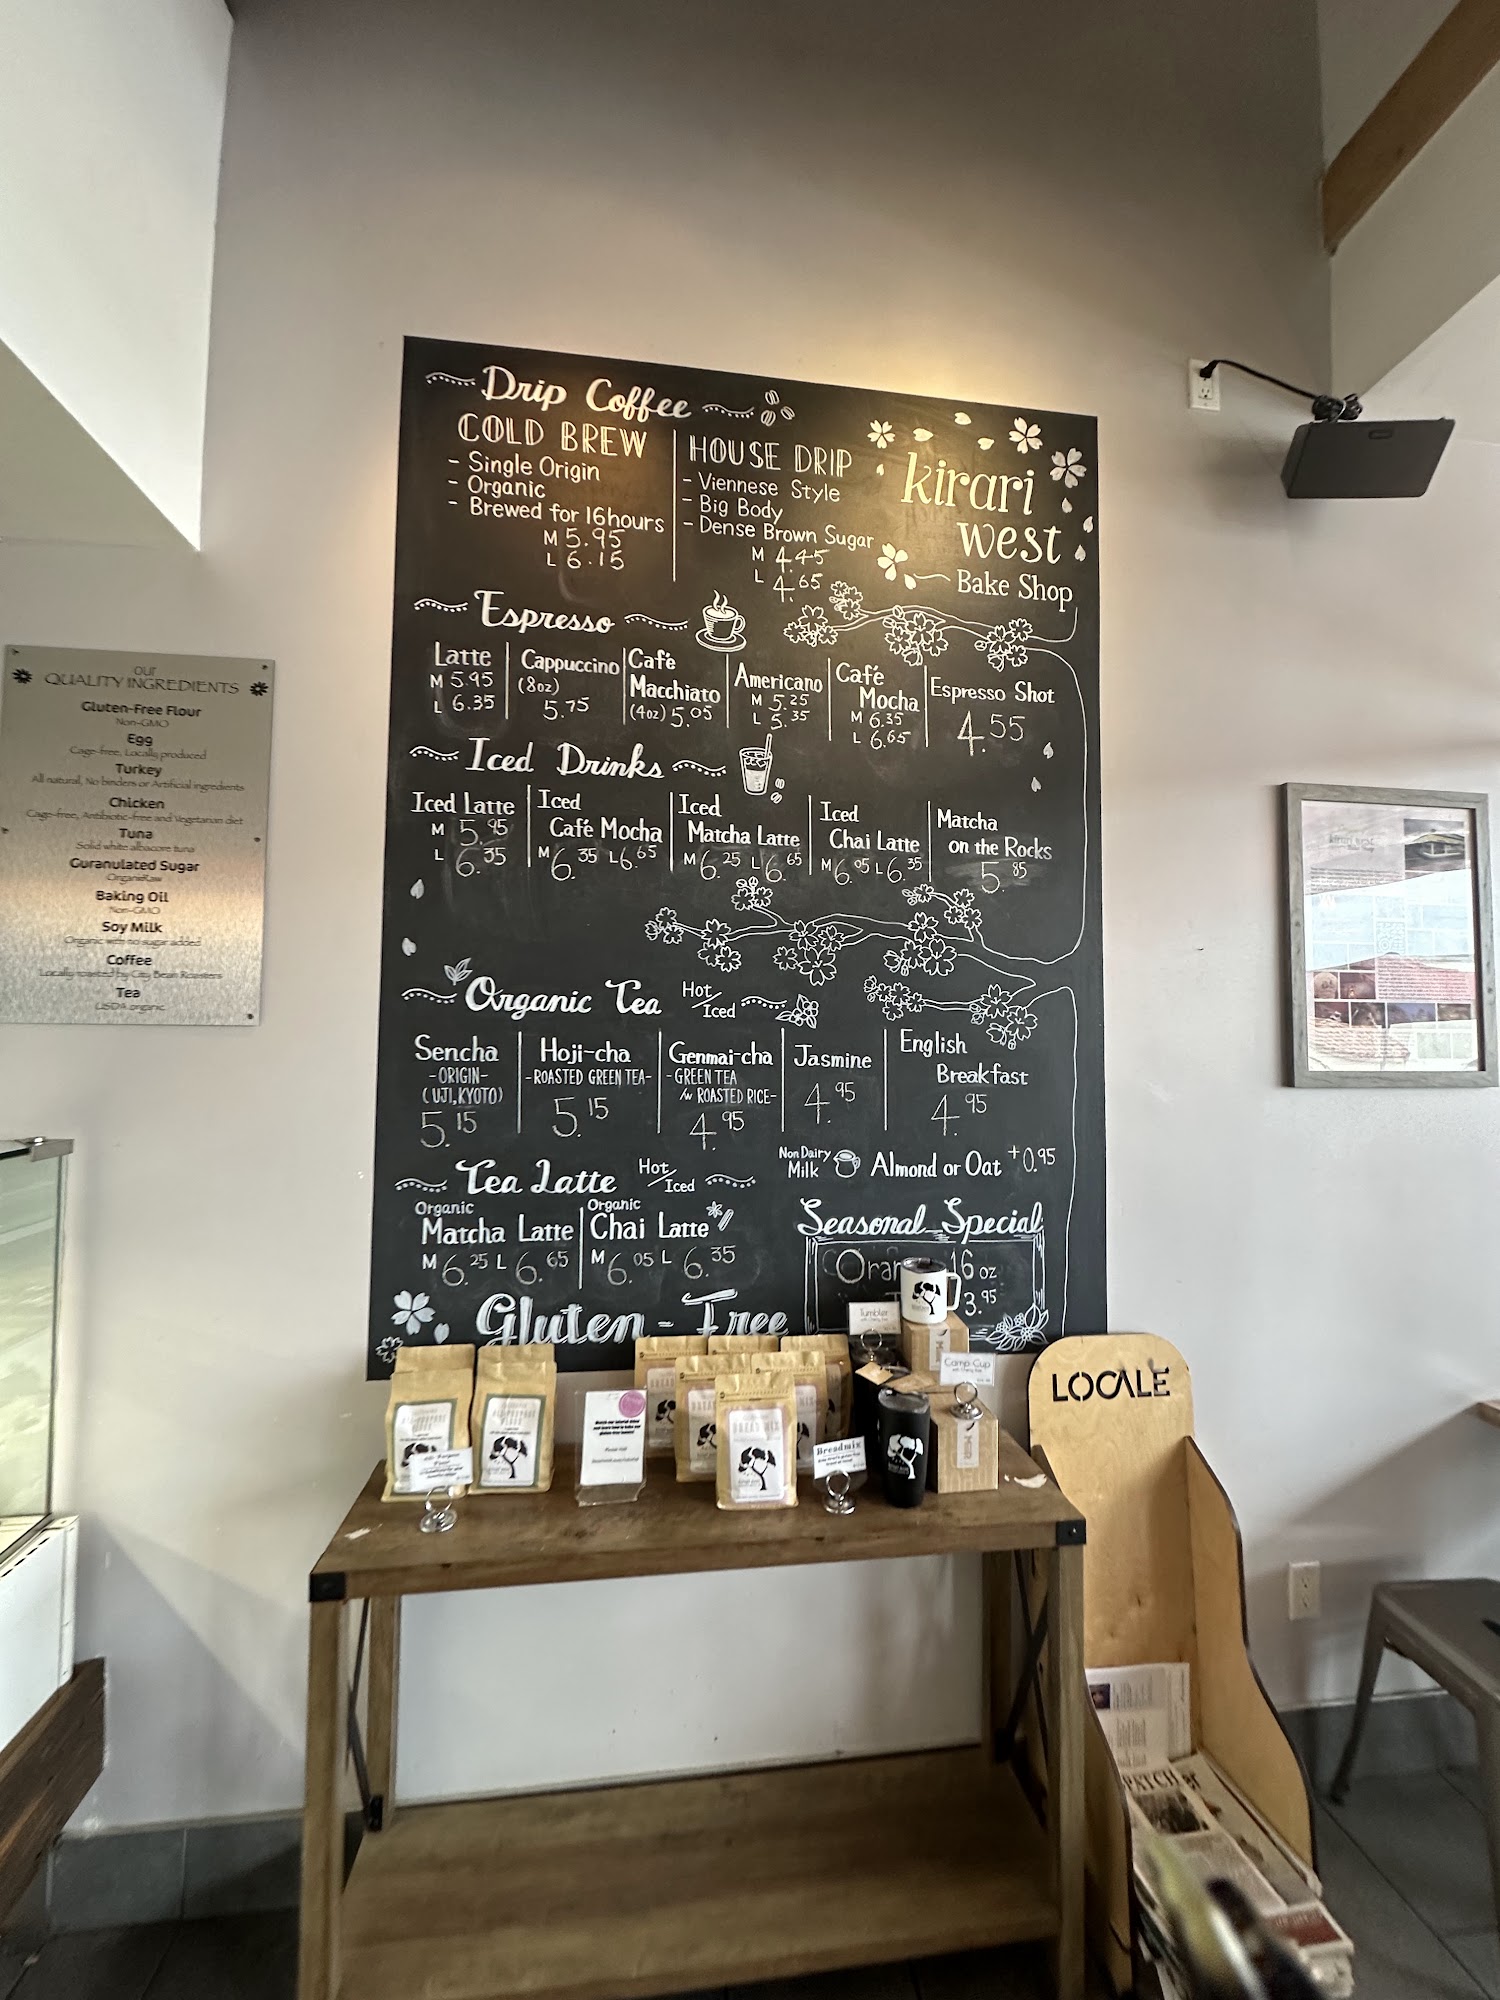 Drip Coffee
COLD BREW
- Single Origin
- Organic
- Brewed for 16hours
M 5.95
L 6.15
HOUSE DRIP
- Viennese Style
- Big Body
- Dense Brown Sugar
M 4.45
L 4.65
kirari
west
Bake Shop
Espresso
Latte
M 5.95
L 6.35
Cappuccino
(8oz)
5.75
Café
Macchiato
(4oz) 5.05
Americano
M 5.25
L 5.35
Café
Mocha
M 6.35
L 6.65
Espresso Shot
4.55
Iced Drinks
Iced Latte
M 5.95
L 6.35
Iced
Café Mocha
M 6.35 L 6.65
Iced
Matcha Latte
M 6.25 L 6.65
Iced
Chai Latte
M 6.05 L 6.35
Matcha
on the Rocks
5.85
Organic Tea Hot/Iced
Sencha
-ORIGIN-
(UJI,KYOTO)
5.15
Hoji-cha
-ROASTED GREEN TEA-
5.15
Genmai-cha
-GREEN TEA
/w ROASTED RICE-
4.95
Jasmine
4.95
English
Breakfast
4.95
Non Dairy
Milk
Almond or Oat +0.95
Tea Latte Hot/Iced
Organic
Matcha Latte
M 6.25 L 6.65
Organic
Chai Latte
M 6.05 L 6.35
Seasonal Special
16 oz
3.95
Gluten-Free
our
QUALITY INGREDIENTS
Gluten-Free Flour
Non-GMO
Egg
Cage-free, Locally produced
Turkey
All natural, No binders or Artificial ingredients
Chicken
Cage-free, Antibiotic-free and Vegetarian diet
Tuna
Solid white albacore tuna
Guranulated Sugar
Organic
Baking Oil
Non-GMO
Soy Milk
Organic with no sugar added
Coffee
Locally roasted by City Bean Roasters
Tea
USDA organic
Tumbler
Camp Cup
MiiR
ALL-PURPOSE
FLOUR
BREAD MIX
Breadmix
LOCALE